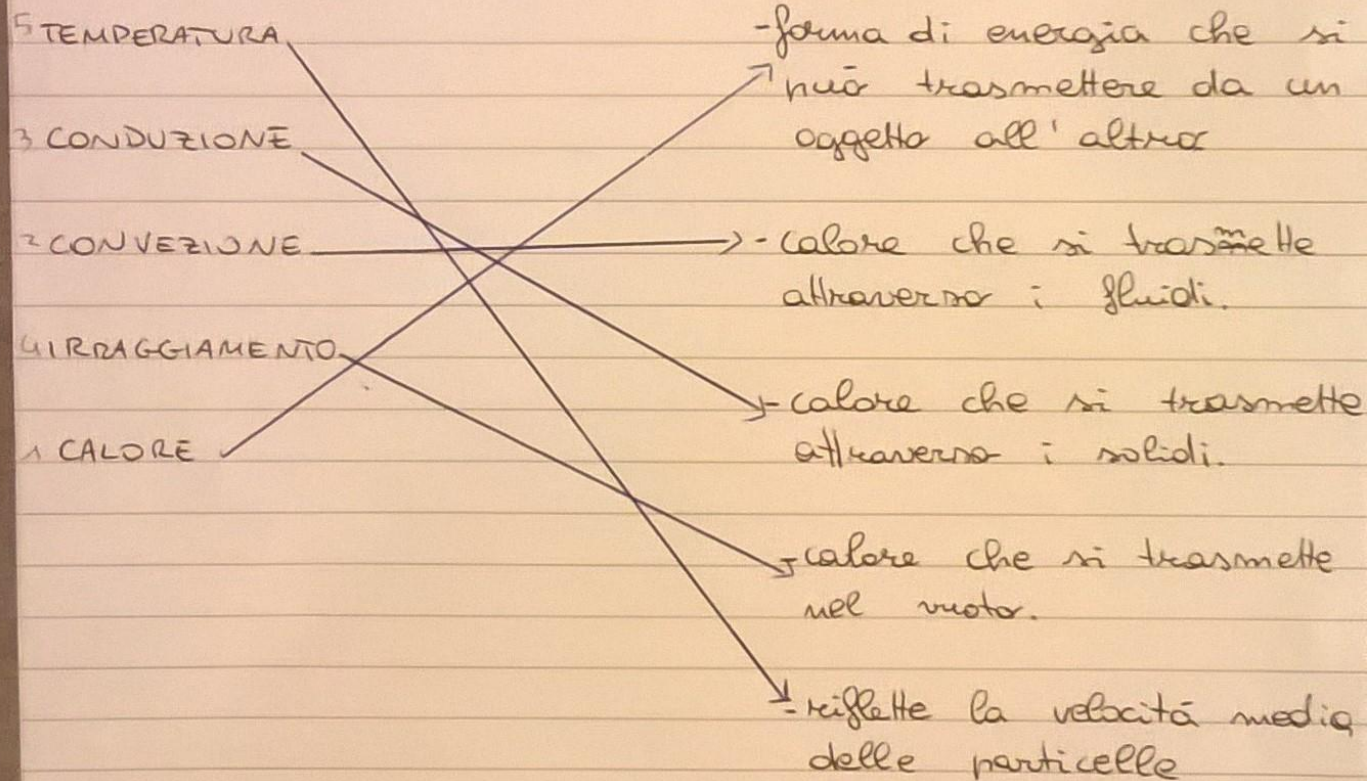 5 TEMPERATURA
3 CONDUZIONE
2 CONVEZIONE
4 IRRAGGIAMENTO
1 CALORE
- forma di energia che si
può trasmettere da un
oggetto all'altro
- calore che si trasmette
attraverso i fluidi.
- calore che si trasmette
attraverso i solidi.
- calore che si trasmette
nel vuoto.
- riflette la velocitá media
delle particelle